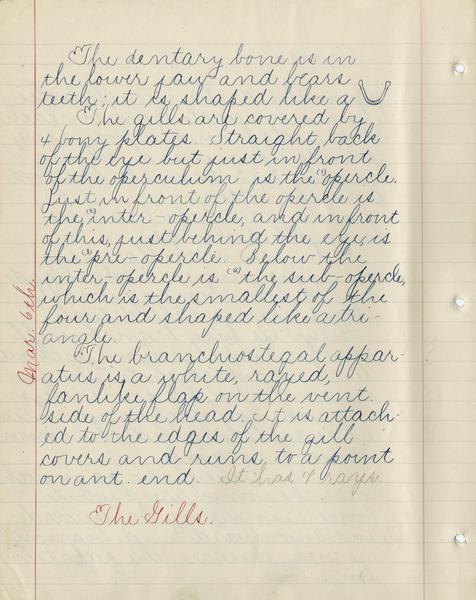 The dentary bone is in
the lower jaw and bears
teeth; it is shaped like a
The gills are covered by
4 bony plates. Straight back
of the eye but just in front
of the operculum is the (1) opercle.
Just in front of the opercle is
the (2) inter-opercle, and in front
of this, just behind the eye, is
the (3) pre-opercle. Below the
inter-opercle is (4) the sub-opercle,
which is the smallest of the
four and shaped like a tri-
angle.
Mar. 6 the.
The branchiostegal appar-
atus is a white, rayed,
fanlike flap on the vent.
side of the head. It is attach-
ed to the edges of the gill
covers and runs to a point
on ant. end. It has 7 rays.
The Gills.